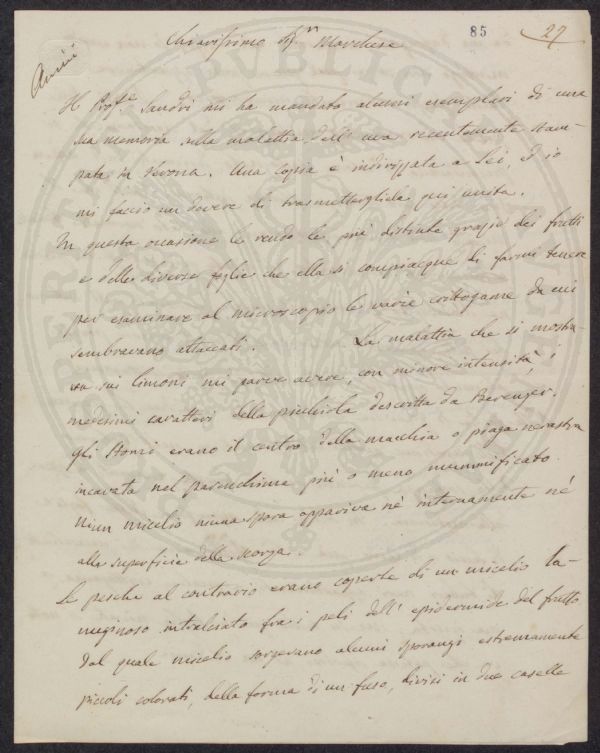 85
27
Amici
Chiarissimo Sig.r Marchese
Il Prof.e Sandri mi ha mandato alcuni esemplari di una
sua memoria sulla malattia dell'uva recentemente stam-
pata in Verona. Una copia è indirizzata a Lei, ed io
mi faccio un dovere di trasmettergliela qui unita.
In questa occasione le rendo le più distinte grazie dei frutti
e delle diverse foglie che ella si compiacque di farmi tenere
per esaminare al microscopio le varie crittogame da cui
sembravano attaccati. La malattia che si mostra-
va sui limoni mi parve avere, con minore intensità, i
medesimi caratteri della picchiola descritta da Berenger.
gli Stomi erano il centro della macchia o piaga nerastra
incavata nel parenchima più o meno mummificato.
Niun micelio niuna spora appariva nè internamente nè
alla superficie della scorza.
Le pesche al contrario erano coperte di un micelio la-
nuginoso intralciato fra i peli dell'epidermide del frutto
dal quale micelio sorgevano alcuni sporangi estremamente
piccoli colorati, della forma di un fuso, divisi in due caselle